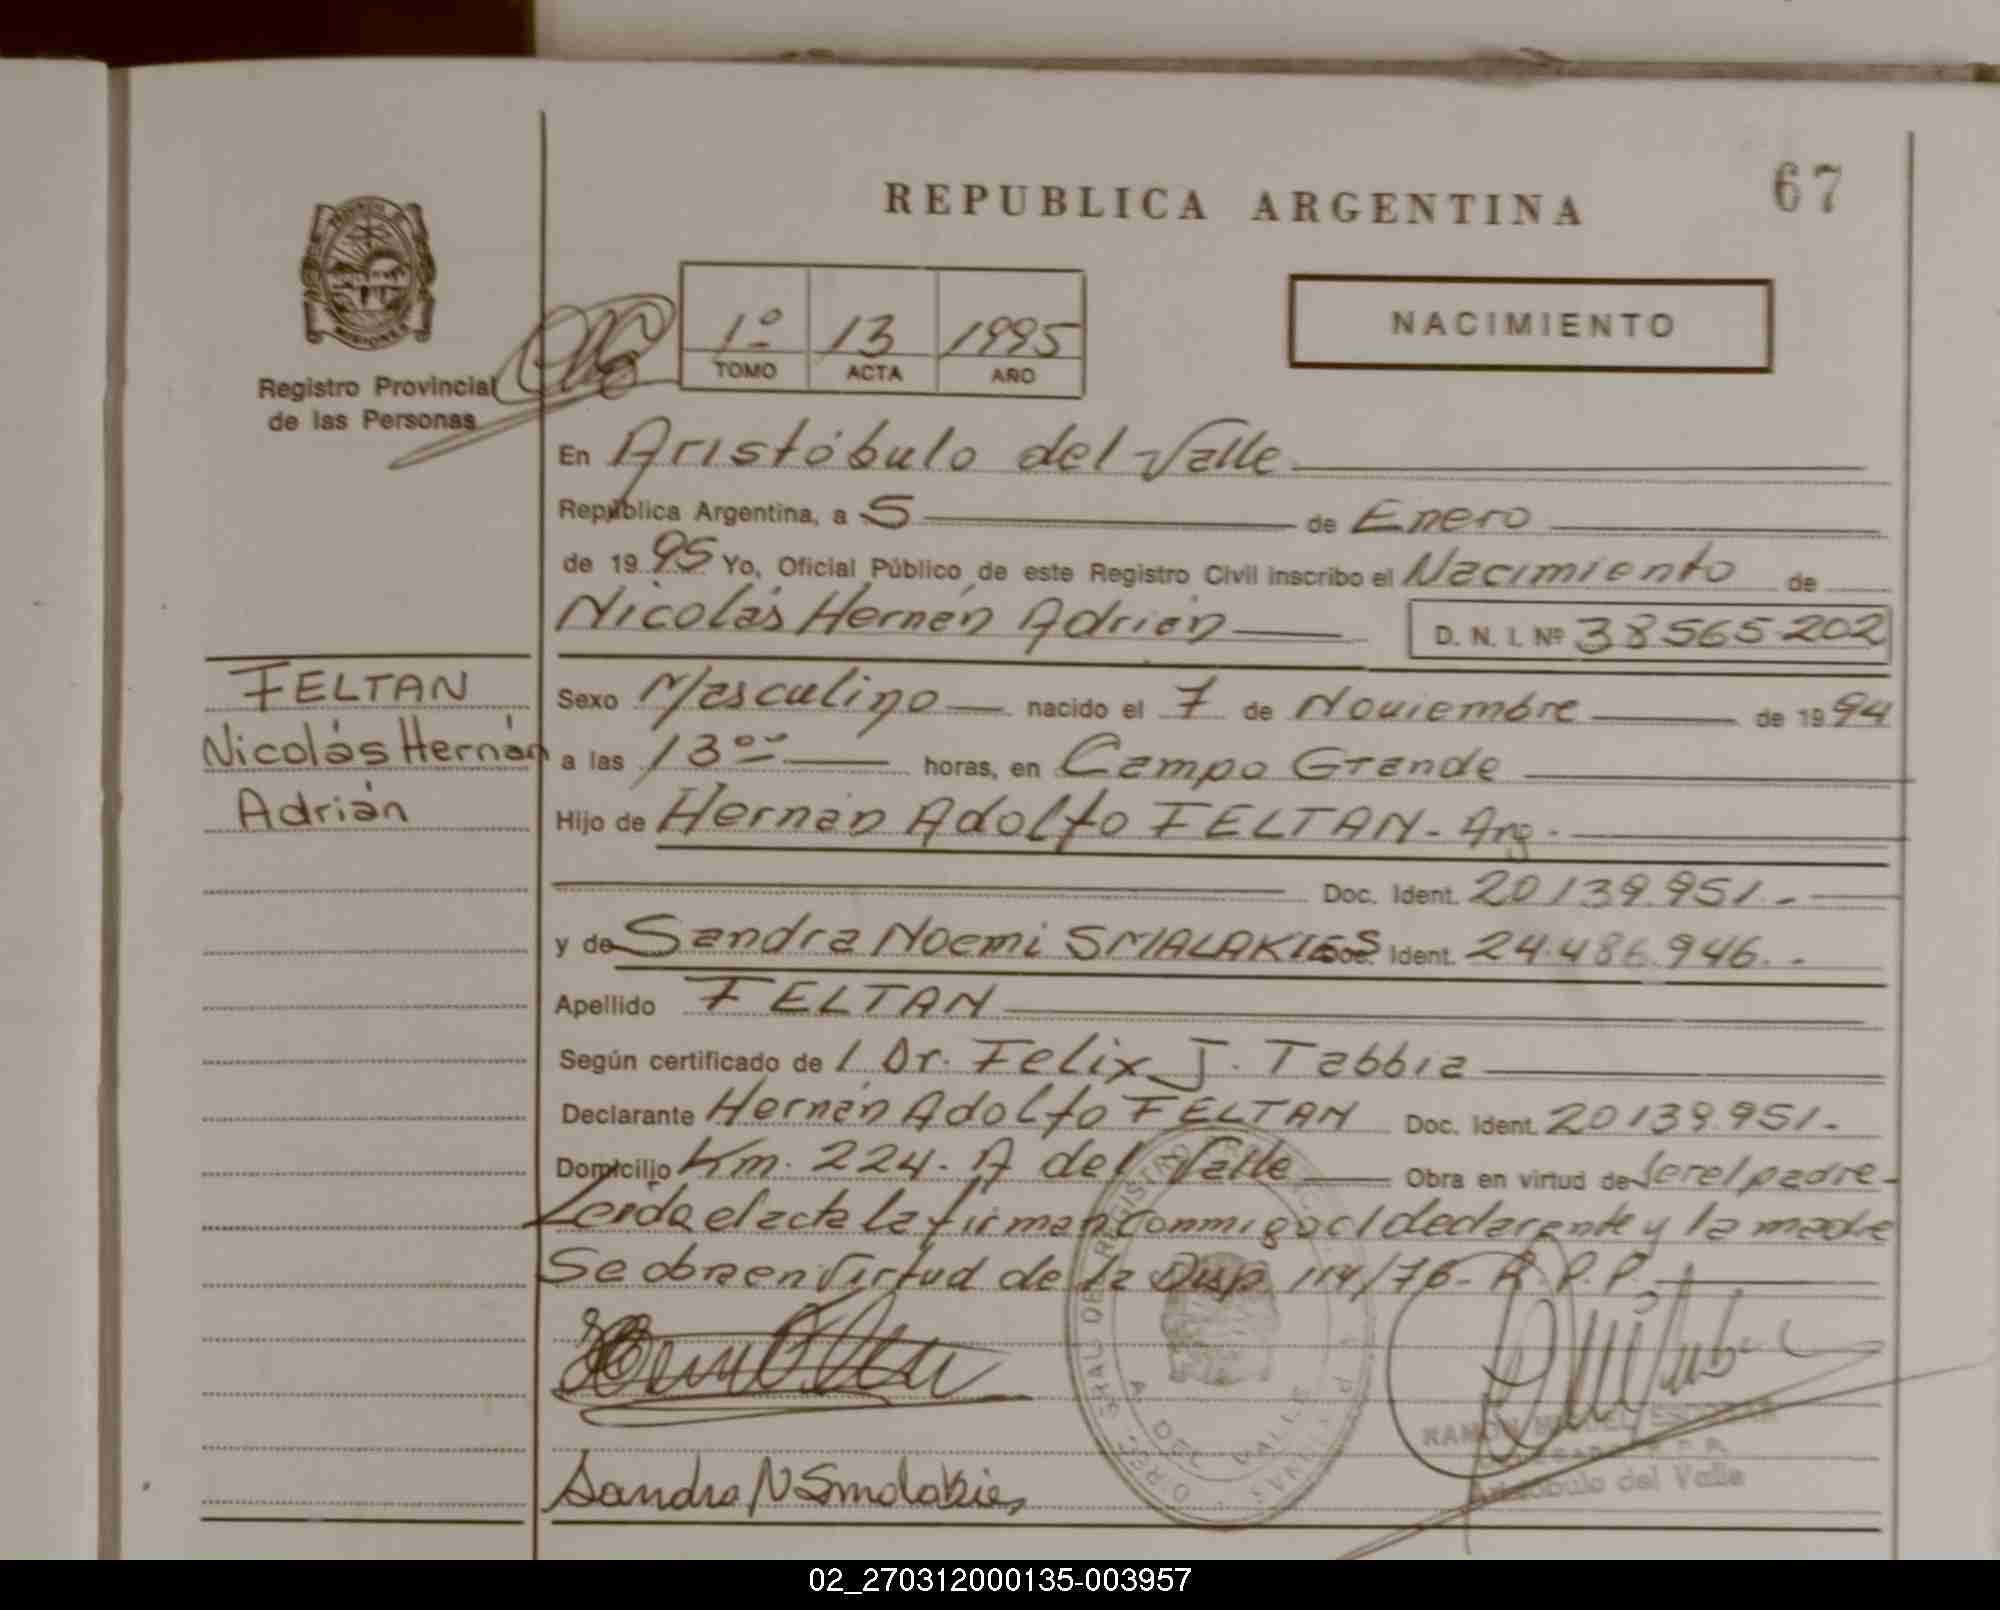 REPUBLICA ARGENTINA
67
1º 13 1995
TOMO ACTA AÑO
NACIMIENTO
Registro Provincial
de las Personas
En Aristóbulo del Valle
República Argentina, a 5 de Enero
de 1995 Yo, Oficial Público de este Registro Civil inscribo el Nacimiento de
Nicolás Hernán Adrián D. N. I. Nº 38565202
FELTAN
Nicolás Hernán
Adrián
Sexo Masculino nacido el 7 de Noviembre de 1994
a las 13 horas, en Campo Grande
Hijo de Hernán Adolfo FELTAN - Arg.
Doc. Ident. 20139.951.-
y de Sandra Noemi SMALAKIES Doc. Ident. 24.486.946.-
Apellido FELTAN
Según certificado de 1 Dr. Felix J. Tabbia
Declarante Hernán Adolfo FELTAN Doc. Ident. 20139.951.-
Domicilio Km. 224 - A del Valle Obra en virtud de ser el padre -
Leida el acta la firman conmigo el declarante y la madre
Se obra en virtud de la Disp. 114/76 - R.P.P.
Sandra N Smalakies
A. DEL VALLE
RAMON MIGUEL
Aristóbulo del Valle
02_270312000135-003957